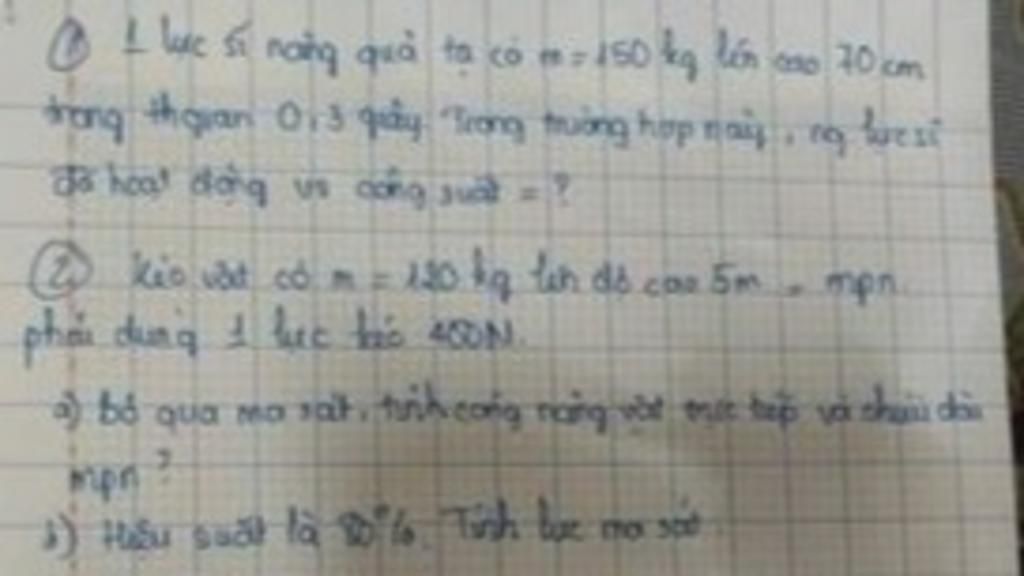 ① 1 lực sĩ nâng quả tạ có m = 150 kg lên cao 70 cm
trong thgian 0,3 giây. Trong trường hợp này, ng lực sĩ
đã hoạt động vs công suất = ?
② Kéo vật có m = 120 kg lên độ cao 5m = mpn
phải dùng 1 lực kéo 400N.
a) bỏ qua ma sát, tính công nâng vật trực tiếp và chiều dài
mpn ?
b) Hiệu suất là 80%. Tính lực ma sát